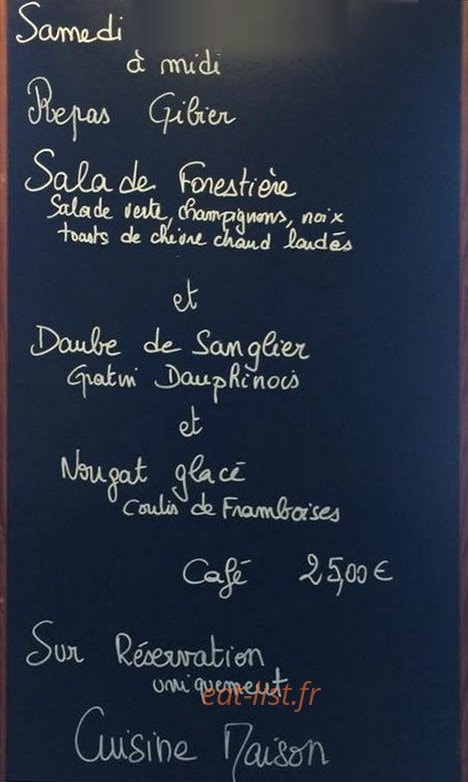 Samedi
à midi
Repas Gibier
Salade Forestière
Salade verte, champignons, noix
toasts de chèvre chaud lardés
et
Daube de Sanglier
Gratin Dauphinois
et
Nougat glacé
Coulis de Framboises
Café 25,00 €
Sur Réservation
uniquement
eat-list.fr
Cuisine Maison